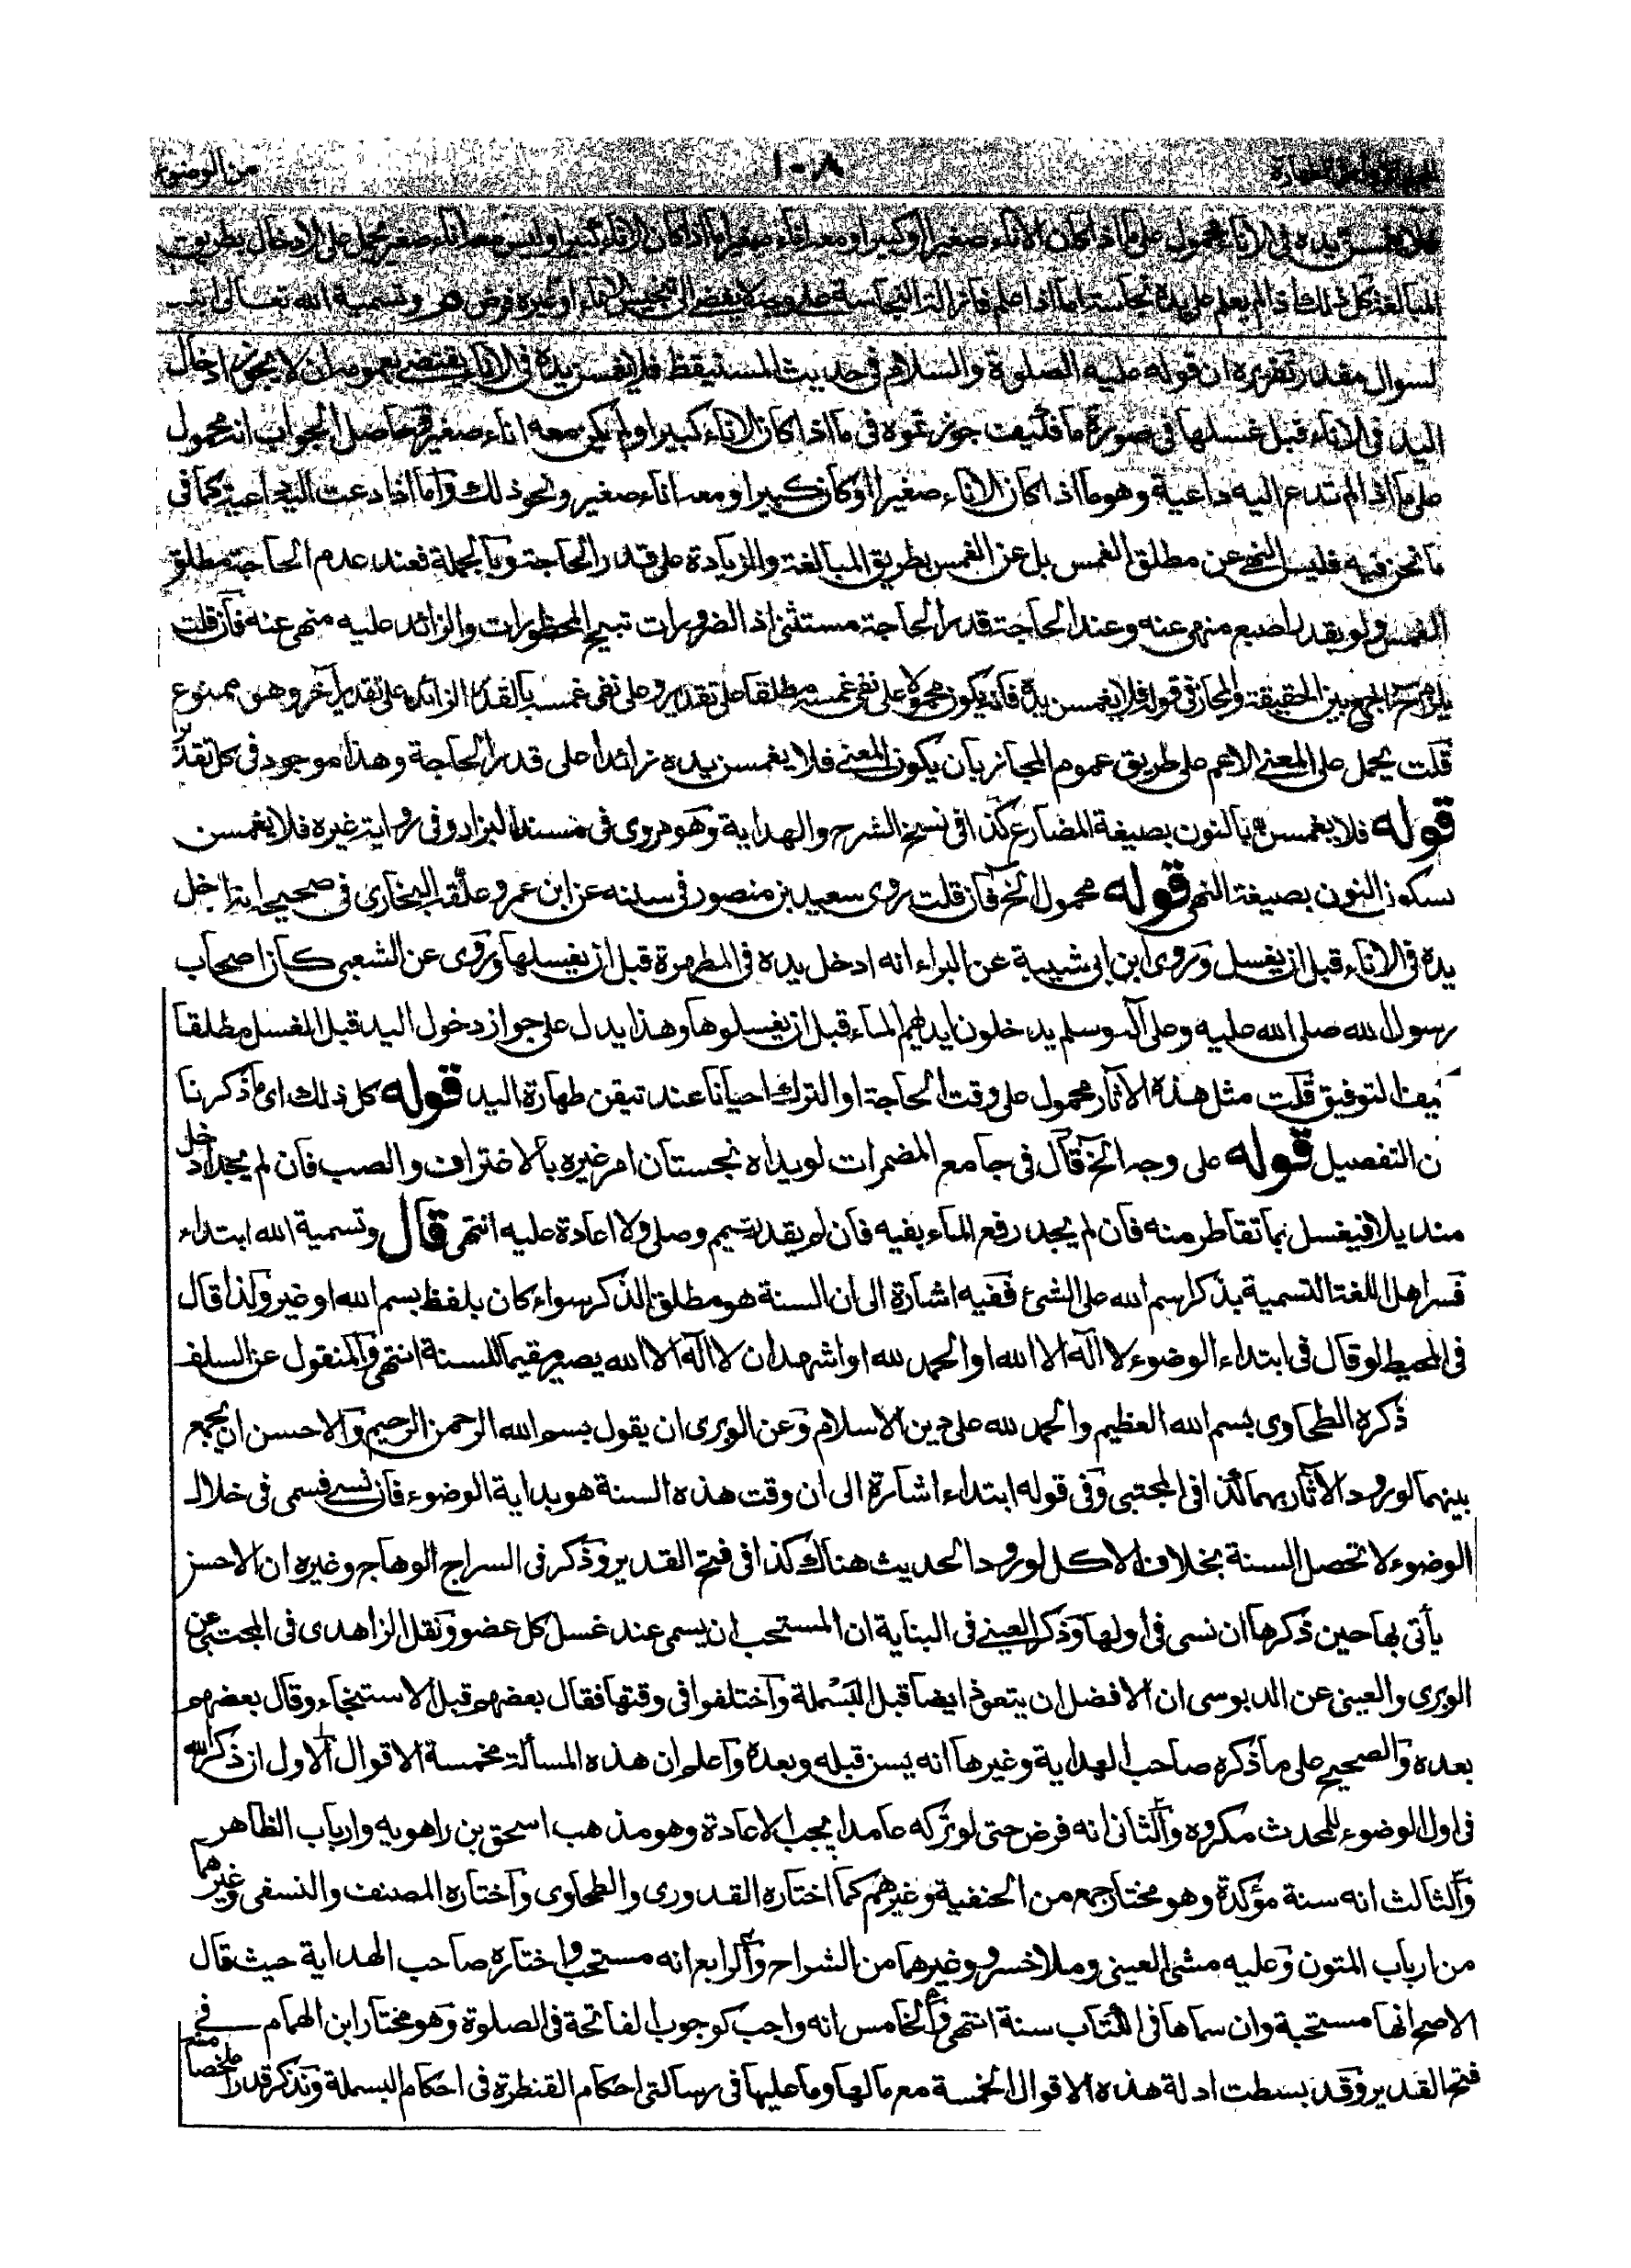 من الوضوء
١٠٨
فلا يغمس يده في الاناء محمول على ما اذا كان الاناء صغيرا او كبيرا ومعه اناء صغير اما اذا كان الاناء كبيرا وليس معه اناء صغير يحمل على الادخال بطريق
المبالغة كل ذلك اذا لم يعلم على يده نجاسة اما اذا علم فازالة النجاسة على وجه لا يفضي الى تنجيس الاناء او غيره فرض هو وتسمية الله تعالى ابتداء
لسوال مقدر تقريره ان قوله عليه الصلوة والسلام في حديث المستيقظ فلا يغمس يده في الاناء يقتضي بعمومه ان لا يجوز ادخال
اليد في الاناء قبل غسلها في صورة ما فكيف جوزتموه في ما اذا كان الاناء كبيرا ولم يكن معه اناء صغير وحاصل الجواب انه محمول
على ما اذا لم تدع اليه داعية وهو ما اذا كان الاناء صغيرا او كان كبيرا ومعه اناء صغير ونحو ذلك واما اذا دعت اليه داعية كما في
ما نحن فيه فليس النهي عن مطلق الغمس بل عن الغمس بطريق المبالغة والزيادة على قدر الحاجة وبالجملة فعند عدم الحاجة مطلق
الغمس ولو بقدر اصبع منهي عنه وعند الحاجة قدر الحاجة مستثنى اذ الضرورات تبيح المحظورات والزائد عليه منهي عنه فان قلت
يلزم ح الجمع بين الحقيقة والمجاز في قوله فلا يغمسن يده فانه يكون محمولا على نفي غمسه مطلقا على تقدير وعلى نفي غمسه بالقدر الزائد على تقدير آخر وهو ممنوع
قلت يحمل على المعنى الاعم على طريق عموم المجاز بان يكون المعنى فلا يغمسن يده زائدا على قدر الحاجة وهذا موجود في كل تقدير
قوله فلا يغمسن بالنون بصيغة المضارع كذا في نسخ الشرح والهداية وهو مروى في مسند البزار وفي رواية غيره فلا يغمسن
بسكون النون بصيغة النهي قوله محمول الخ فان قلت روى سعيد بن منصور في سننه عن ابن عمر وعلقه البخاري في صحيحه انه ادخل
يده في الاناء قبل ان يغسل وروى ابن ابي شيبة عن البراء انه ادخل يده في المطهرة قبل ان يغسلها وروى عن الشعبي كان اصحاب
رسول الله صلى الله عليه وعلى آله وسلم يدخلون ايديهم الماء قبل ان يغسلوها وهذا يدل على جواز دخول اليد قبل الغسل مطلقا
يف التوفيق قلت مثل هذه الآثار محمول على وقت الحاجة او الترك احيانا عند تيقن طهارة اليد قوله كل ذلك اى ما ذكرنا
ن التفصيل قوله على وجه الخ قال في جامع المضمرات لو يداه نجستان امر غيره بالاغتراف والصب فان لم يجد ادخل
منديلا فيغسل بما تقاطر منه فان لم يجد رفع الماء بفيه فان لم يقدر تيمم وصلى ولا اعادة عليه انتهى قال وتسمية الله ابتداء
فسر اهل اللغة التسمية بذكر اسم الله على الشئ ففيه اشارة الى ان السنة هو مطلق الذكر سواء كان بلفظ بسم الله او غيره ولذا قال
في المحيط لو قال في ابتداء الوضوء لا اله الا الله او الحمد لله او اشهد ان لا اله الا الله يصير مقيما للسنة انتهى والمنقول عن السلف
ذكره الطحاوي بسم الله العظيم والحمد لله على دين الاسلام وعن الوبرى ان يقول بسم الله الرحمن الرحيم والاحسن ان يجمع
بينهما لورود الآثار بهما كذا في المجتبى وفي قوله ابتداء اشارة الى ان وقت هذه السنة هو بداية الوضوء فان نسي فسمى في خلال
الوضوء لا تحصل السنة بخلاف الاكل لورود الحديث هناك كذا في فتح القدير وذكر في السراج الوهاج وغيره ان الاحسن
يأتي بها حين ذكرها ان نسى في اولها وذكر العيني في البناية ان المستحب ان يسمى عند غسل كل عضو ونقل الزاهدى في المجتبى عن
الوبرى والعينى عن الدبوسى ان الافضل ان يتعوذ ايضا قبل البسملة واختلفوا في وقتها فقال بعضهم قبل الاستنجاء وقال بعضهم
بعده والصحيح على ما ذكره صاحب الهداية وغيرها انه يسن قبله وبعده واعلم ان هذه المسألة مخمسة الاقوال الاول ان ذكر الله
في اول الوضوء للمحدث مكروه والثاني انه فرض حتى لو تركه عامدا يجب الاعادة وهو مذهب اسحق بن راهويه وارباب الظاهر
والثالث انه سنة مؤكدة وهو مختار جمع من الحنفية وغيرهم كما اختاره القدورى والطحاوى واختاره المصنف والنسفى وغيرهما
من ارباب المتون وعليه مشى العينى وملا خسرو وغيرهما من الشراح والرابع انه مستحب واختاره صاحب الهداية حيث قال
الاصح انها مستحبة وان سماها في الكتاب سنة انتهى والخامس انه واجب كوجوب الفاتحة في الصلوة وهو مختار ابن الهمام في
فتح القدير وقد بسطت ادلة هذه الاقوال الخمسة مع ما لها وما عليها في رسالتى احكام القنطرة في احكام البسملة ونذكر قدرا ملخصا منه